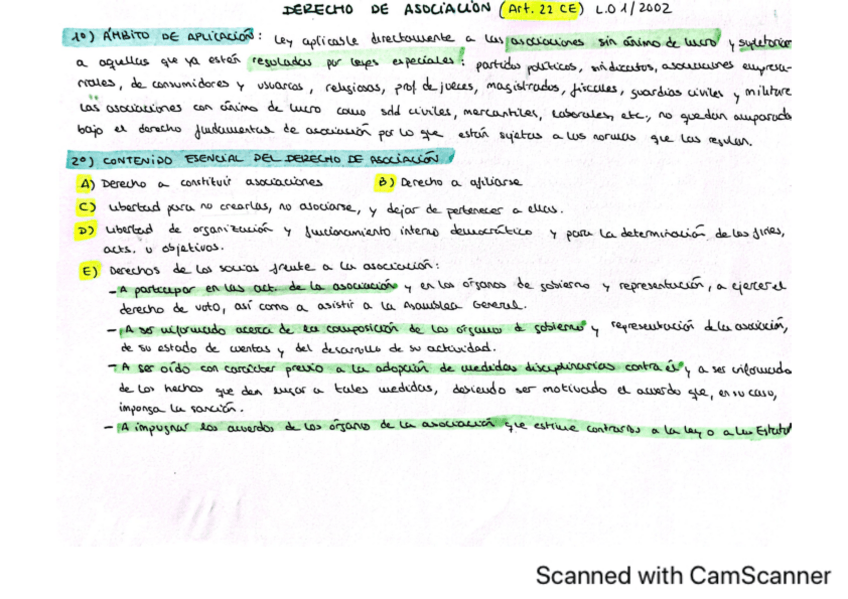 DERECHO DE ASOCIACIÓN (Art. 22 CE) L.O 1/2002
1º) ÁMBITO DE APLICACIÓN: Ley aplicable directamente a las asociaciones sin ánimo de lucro y supletoria
a aquellas que ya están reguladas por leyes especiales: partidos políticos, sindicatos, asociaciones empresa-
riales, de consumidores y usuarios, religiosas, prof de jueces, magistrados, fiscales, guardias civiles y militare
Las asociaciones con ánimo de lucro como sdd civiles, mercantiles, laborales, etc, no quedan amparada
bajo el derecho fundamental de asociación por lo que están sujetas a las normas que las regulan.
2º) CONTENIDO ESENCIAL DEL DERECHO DE ASOCIACIÓN
A) Derecho a constituir asociaciones B) Derecho a afiliarse
C) Libertad para no crearlas, no asociarse, y dejar de pertenecer a ellas.
D) Libertad de organización y funcionamiento interno democrático y para la determinación de los fines,
acts. u objetivos.
E) Derechos de los socios frente a la asociación:
- A participar en las act. de la asociación y en los órganos de gobierno y representación, a ejercer el
derecho de voto, así como a asistir a la Asamblea General.
- A ser informado acerca de la composición de los órganos de gobierno y representación de la asociación,
de su estado de cuentas y del desarrollo de su actividad.
- A ser oído con carácter previo a la adopción de medidas disciplinarias contra él y a ser informado
de los hechos que den lugar a tales medidas, debiendo ser motivado el acuerdo que, en su caso,
imponga la sanción.
- A impugnar los acuerdos de los órganos de la asociación que estime contrarios a la ley o a los Estatut
Scanned with CamScanner